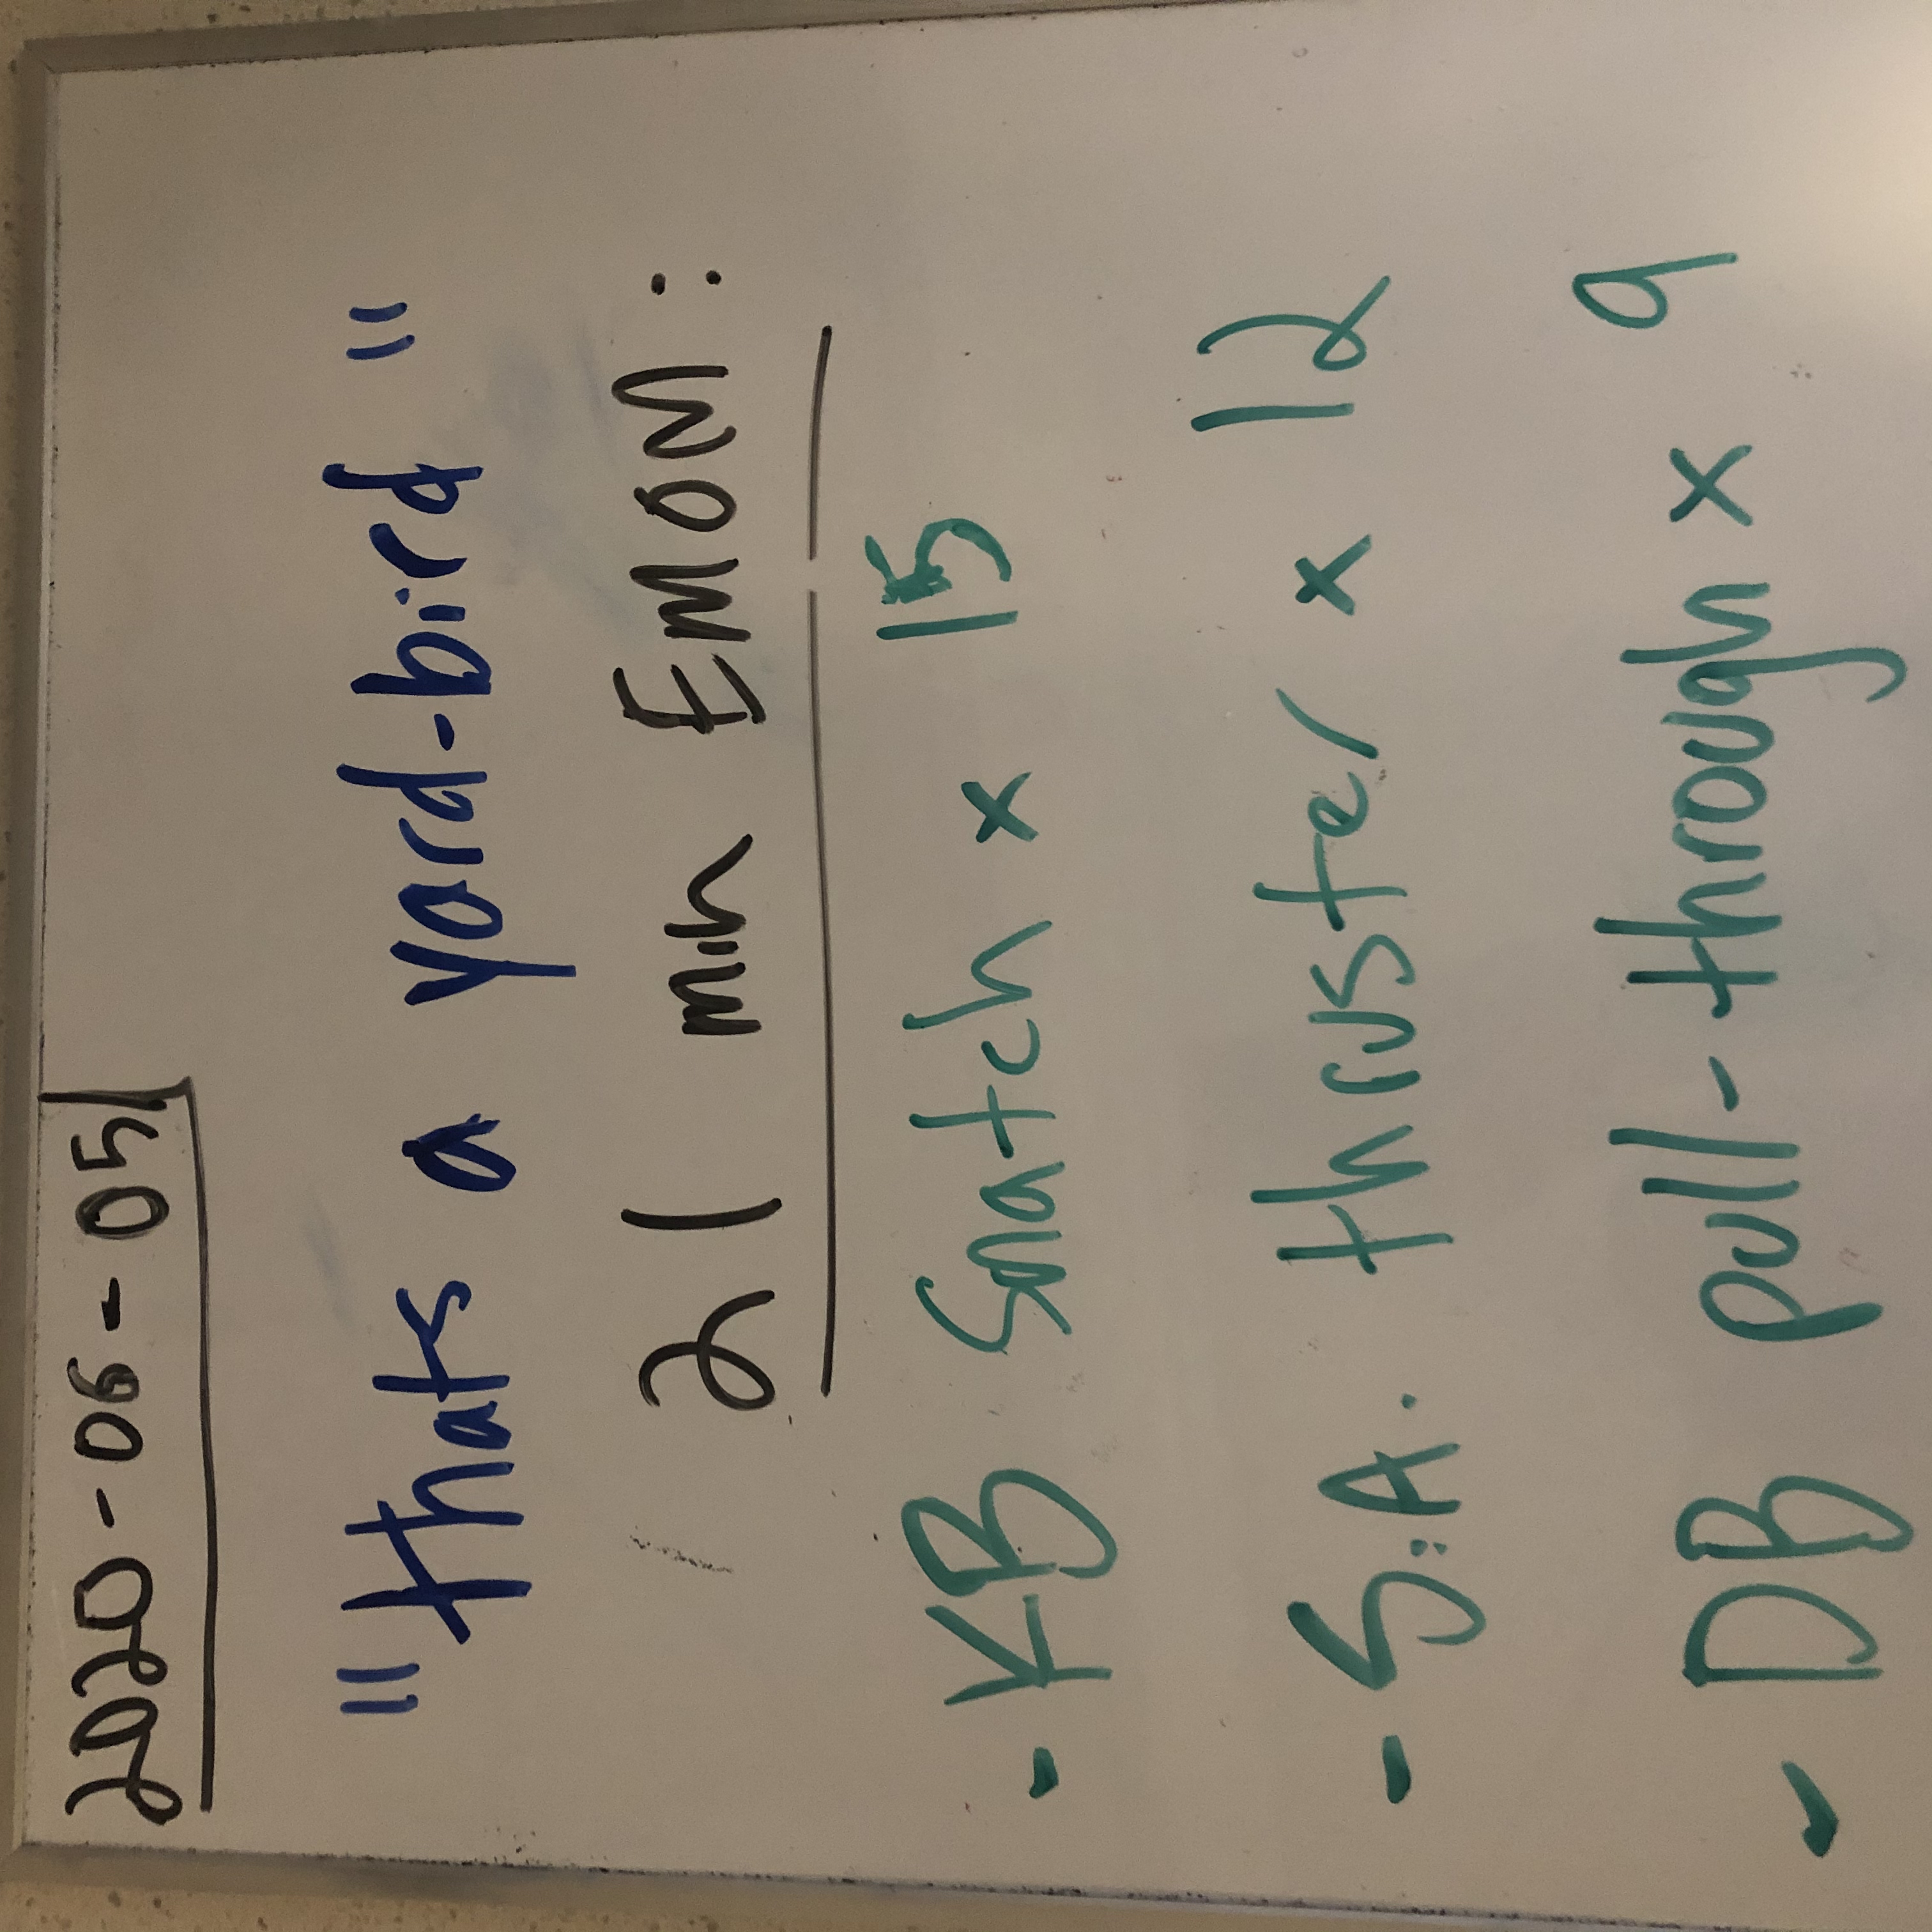 2020-06-05
"thats a yard-bird"
21 min EMOM:
- KB Snatch x 15
- S.A. thruster x 12
- DB pull-through x 9